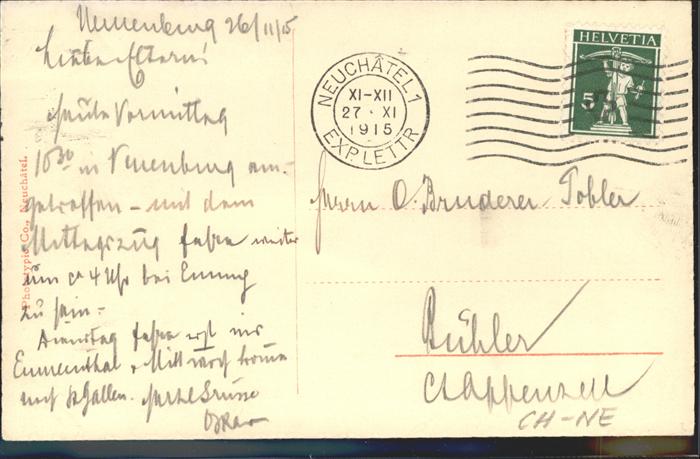 Neuenburg 26/11/15
Liebe Eltern!
Heute Vormittag
10 30 in Neuenburg ein-
getroffen – mit dem
Mittagszug fahre weiter
um ca 4 Uhr bei Emmy
zu sein –
Dienstag fahre erst ins
Emmenthal & Mittwoch komme
nach St Gallen. Herzl Grüsse
Oskar
Phototypie Co., Neuchâtel.
NEUCHÂTEL 1
XI-XII
27 · XI
1915
EXP. LETTR.
HELVETIA
5
Herrn O. Bruderer Tobler
Bühler
Ct Appenzell
CH-NE